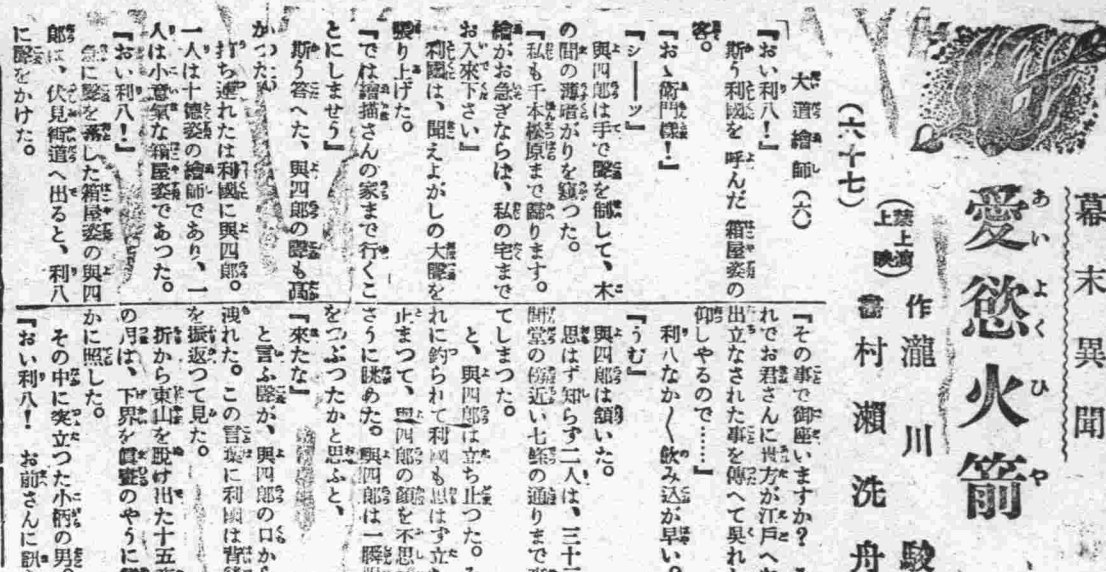 幕末異聞
愛慾火箭
あいよくひや
作 瀧川駿
畵 村瀬洗舟
(禁上演上映)
(六十七)
大道繪師(六)
『おい利八!』
斯う利國を 呼んだ 箱屋姿の
客。
『おゝ衛門樣!』
『シ――ッ』
與四郎は手で聲を制して、木
の間の薄暗がりを窺つた。
『私も千本松原まで歸ります。
繪がお急ぎならは、私の宅まで
お入來下さい』
利國は、聞えよがしの大聲を
張り上げた。
『では繪描さんの家まで行くこ
とにしませう』
斯う答へた、與四郎の聲も高
かつた。
打ち連れたは利國に與四郎。
一人は十德姿の繪師であり、一
人は小意氣な箱屋姿であつた。
『おい利八!』
急に聲を落した箱屋姿の與四
郎は、伏見街道へ出ると、利八
に聲をかけた。
『その事で御座いますか?
れでお君さんに貴方が江戸へ
出立なされた事を傳へて呉れ
仰しやるので……』
利八なか〳〵飲み込が早い。
『うむ』
與四郎は頷いた。
思はず知らず二人は、三十三
間堂の傍近い七條の通りまで
てしまつた。
と、與四郎は立ち止つた。
れに釣られて利國も思はず立
止まつて、與四郎の顔を不思
さうに眺めた。與四郎は一瞬
をつぶつたかと思ふと、
『來たな』
と言ふ聲が、與四郎の口から
洩れた。この言葉に利國は背
を振返つて見た。
折から東山を脱け出た十五
の月は、下界を眞晝のやうに
かに照した。
その中に突立つた小柄の男。
『おい利八! お前さんに訊